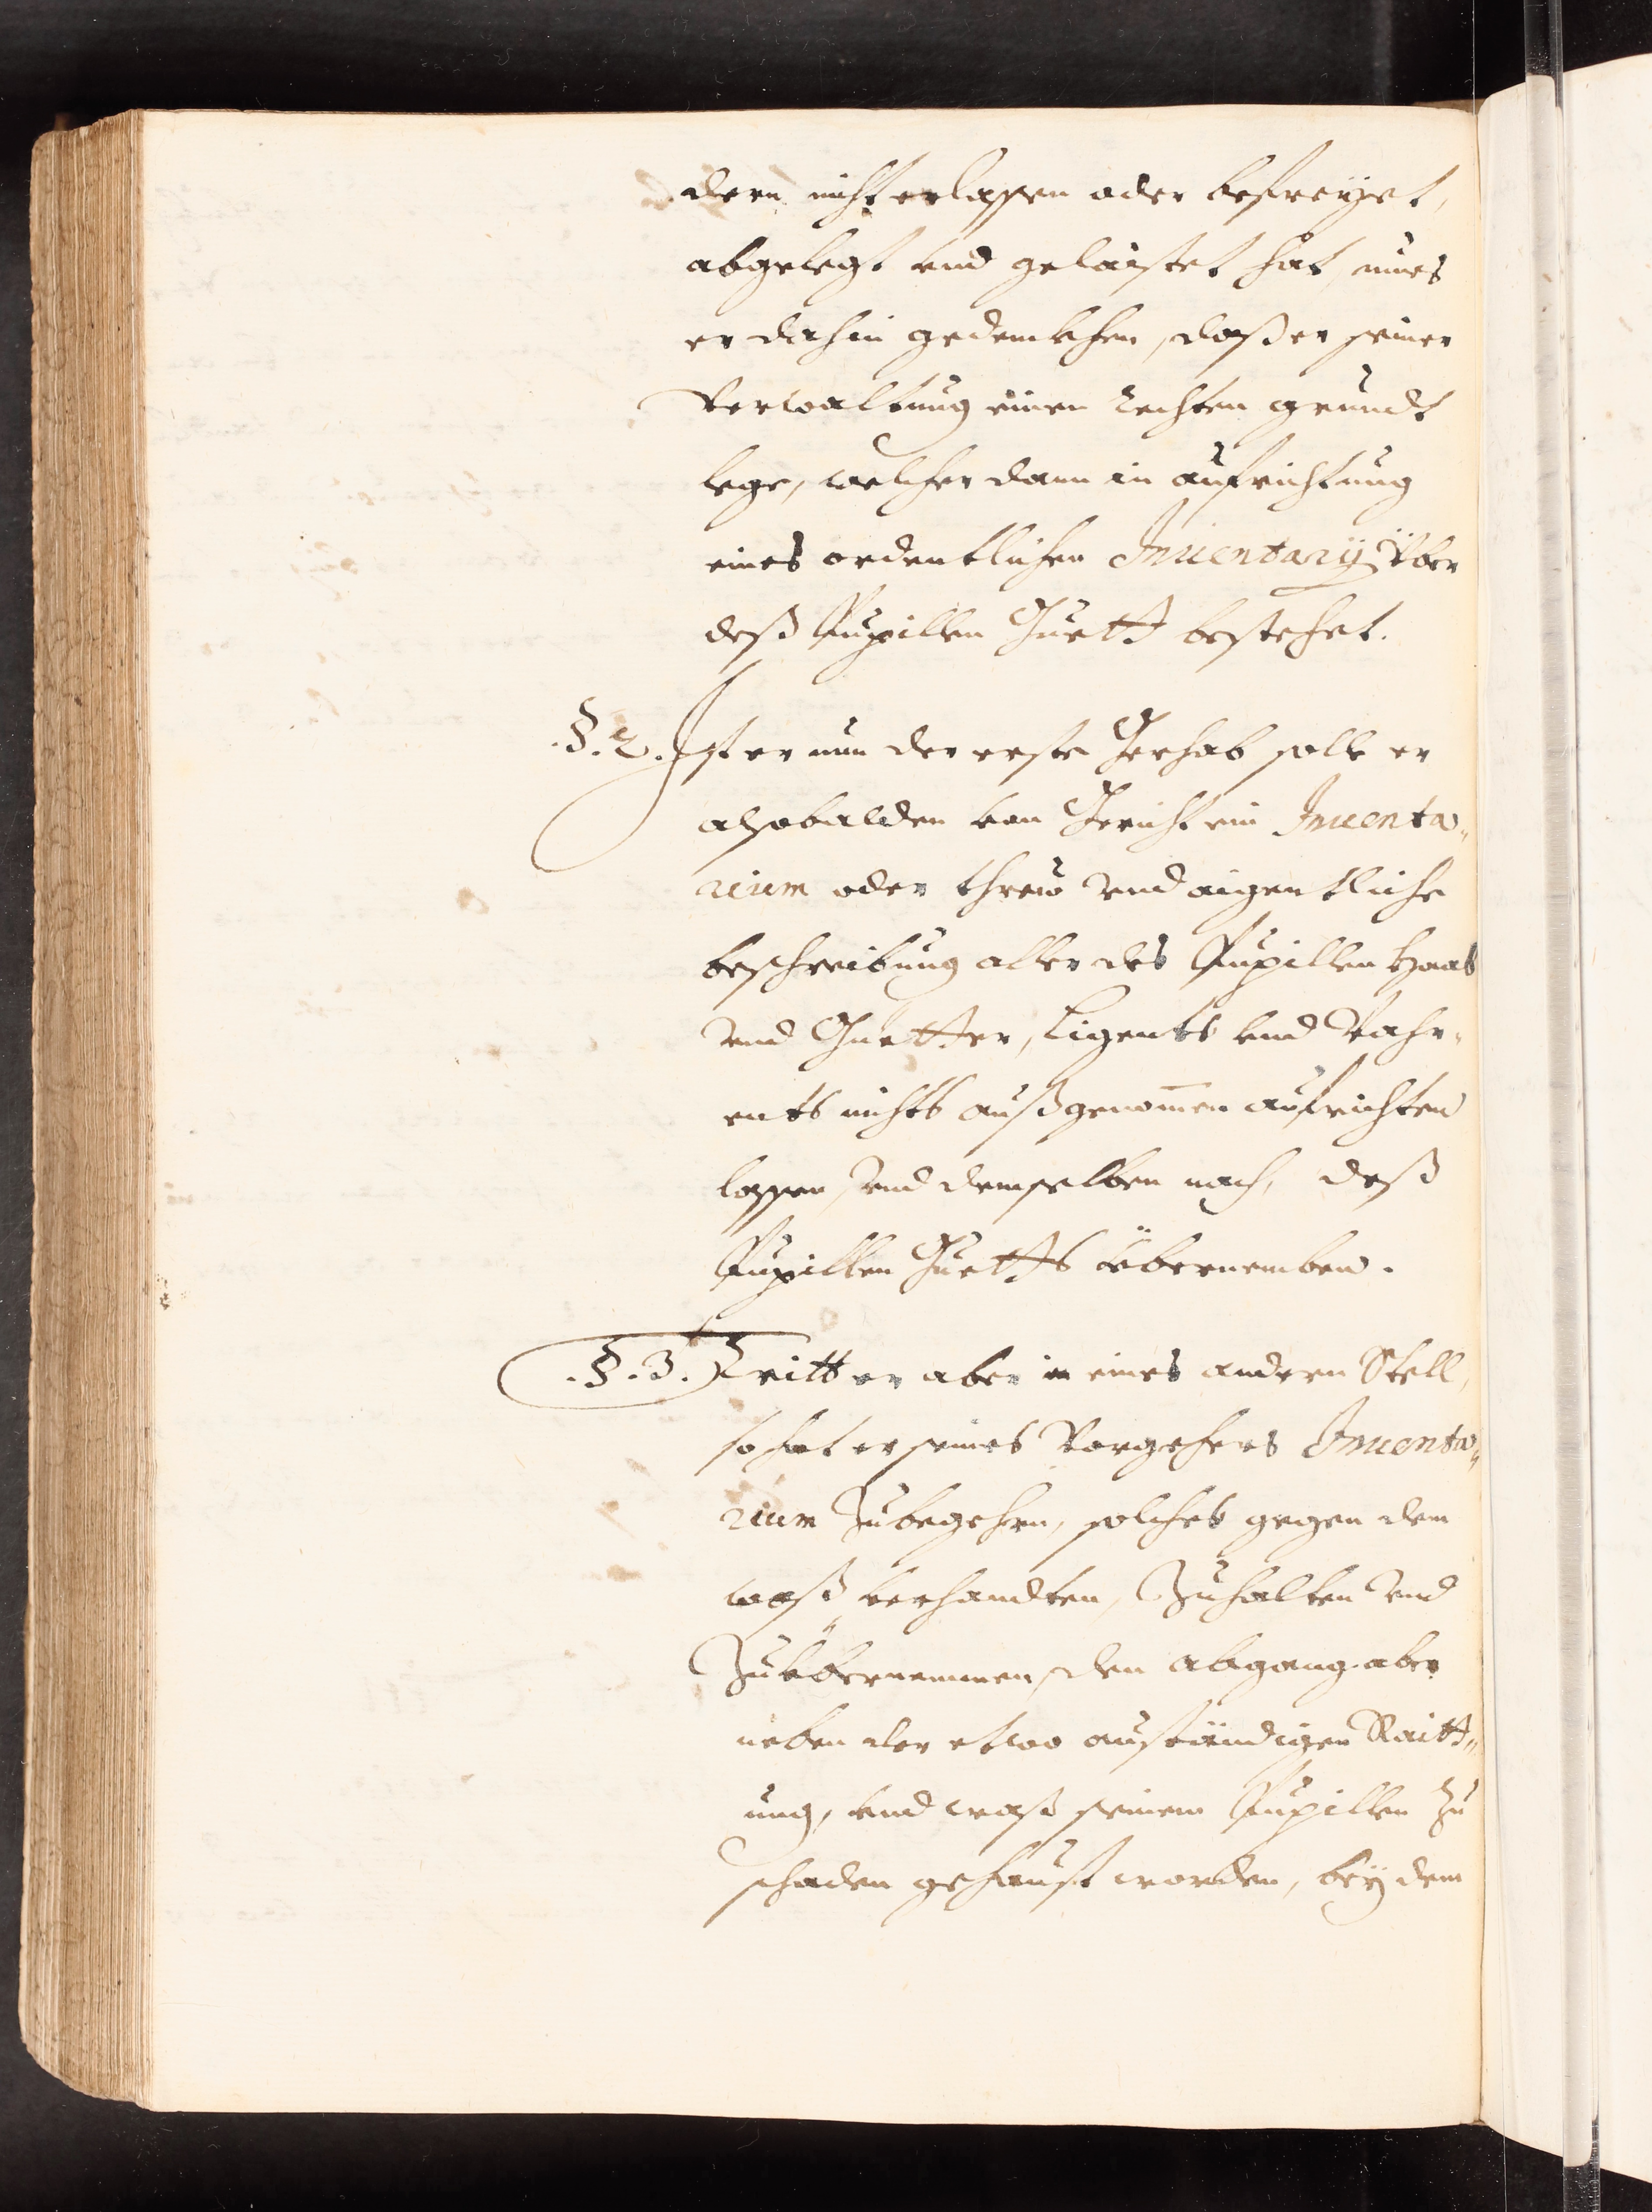 dern nicht erlassen oder befreÿet,
abgelegt vnd gelaistet hat, mues
er dahin gedenkhen, daß er seiner
Verwaltung einen rechten grundt
lege, welcher dann in aufrichtung
eines ordentlichen Inuentarÿ Vber
deß Pupillen Guett bestehet.
.§.2. Ist er nun der erste Gerhab solle er
alsobalden von Gericht ein Inuenta„
rium oder threw vnd aigentliche
beschreibung aller des Pupillen Haab
vnd Guetter, Ligents vnd Vahr„
ents nichts außgenom̄en aufrichten
lassen, vnd demselben nach, deß
Pupillen Guetts übernemben.
.§.3. Tritt er aber in eines andern Stell,
so hat er seines Vorgehers Inuenta„
rium Zubegehrn, solches gegen dem
waß verhandten, Zuhalten vnd
Zuübernemmen, den abgang aber
neben der etwo auständigen Raitt„
ung, vnd waß seinem Pupillen zu
schaden gehaust worden, beÿ dem